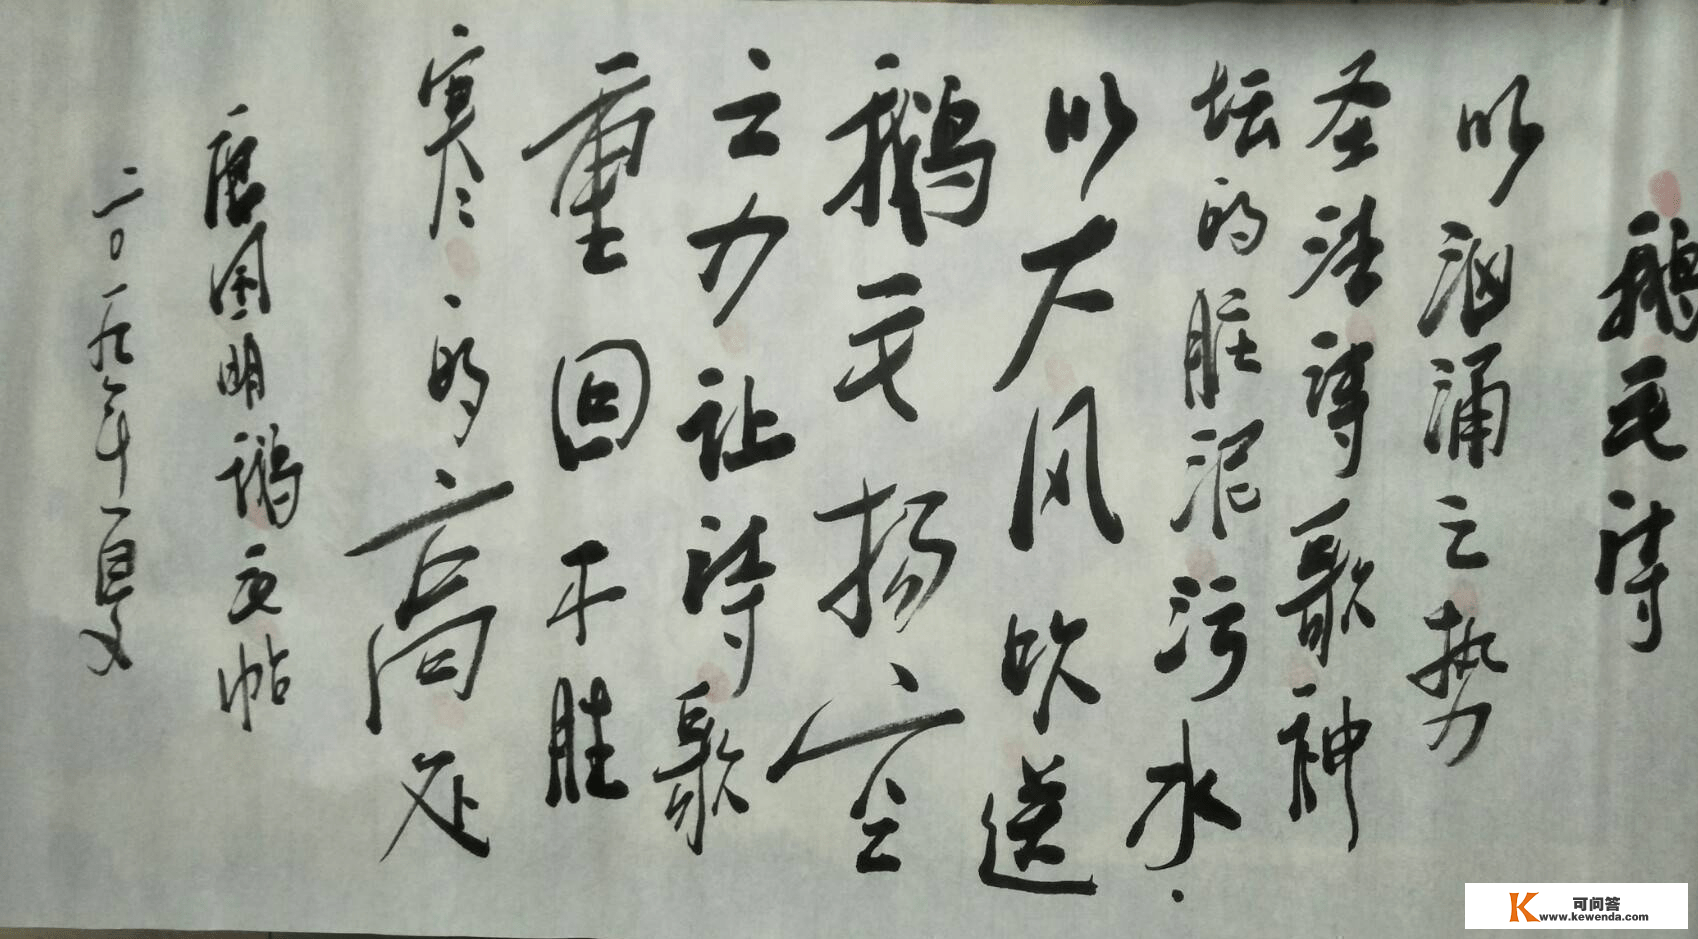 鹅毛诗
以汹涌之势
圣洁诗歌神
坛的脏泥污水.
以大风吹送
鹅毛扬空
之力让诗歌
重回不胜
寒的高处
唐国明鹅毛帖
二0一九年一月
可问答
www.kewenda.com